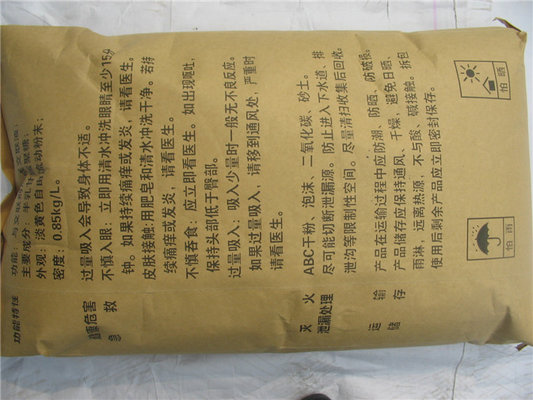 功能特性
功能：与
主要成分：半乳甘露聚糖；
外观：淡黄色自由流动粉末；
密度：0.85kg/L。
健康危害
过量吸入会导致身体不适。
急救
不慎入眼：立即用清水冲洗眼睛至少15分
钟。如果持续痛痒或发炎，请看医生。
皮肤接触：用肥皂和清水冲洗干净。若持
续痛痒或发炎，请看医生。
不慎吞食：应立即看医生。如出现呕吐，
保持头部低于臀部。
过量吸入：吸入少量时一般无不良反应。
如果过量吸入，请移到通风处，严重时
请看医生。
灭火
ABC干粉、泡沫、二氧化碳、砂土。
泄漏处理
尽可能切断泄漏源。防止进入下水道、排
泄沟等限制性空间。尽量清扫收集后回收。
运输
产品在运输过程中应防潮、防晒、防破损。
储存
产品储存应保持通风、干燥，避免日晒、
雨淋，远离热源，不与酸、碱接触。拆包
使用后剩余产品应立即密封保存。
怕晒
怕雨